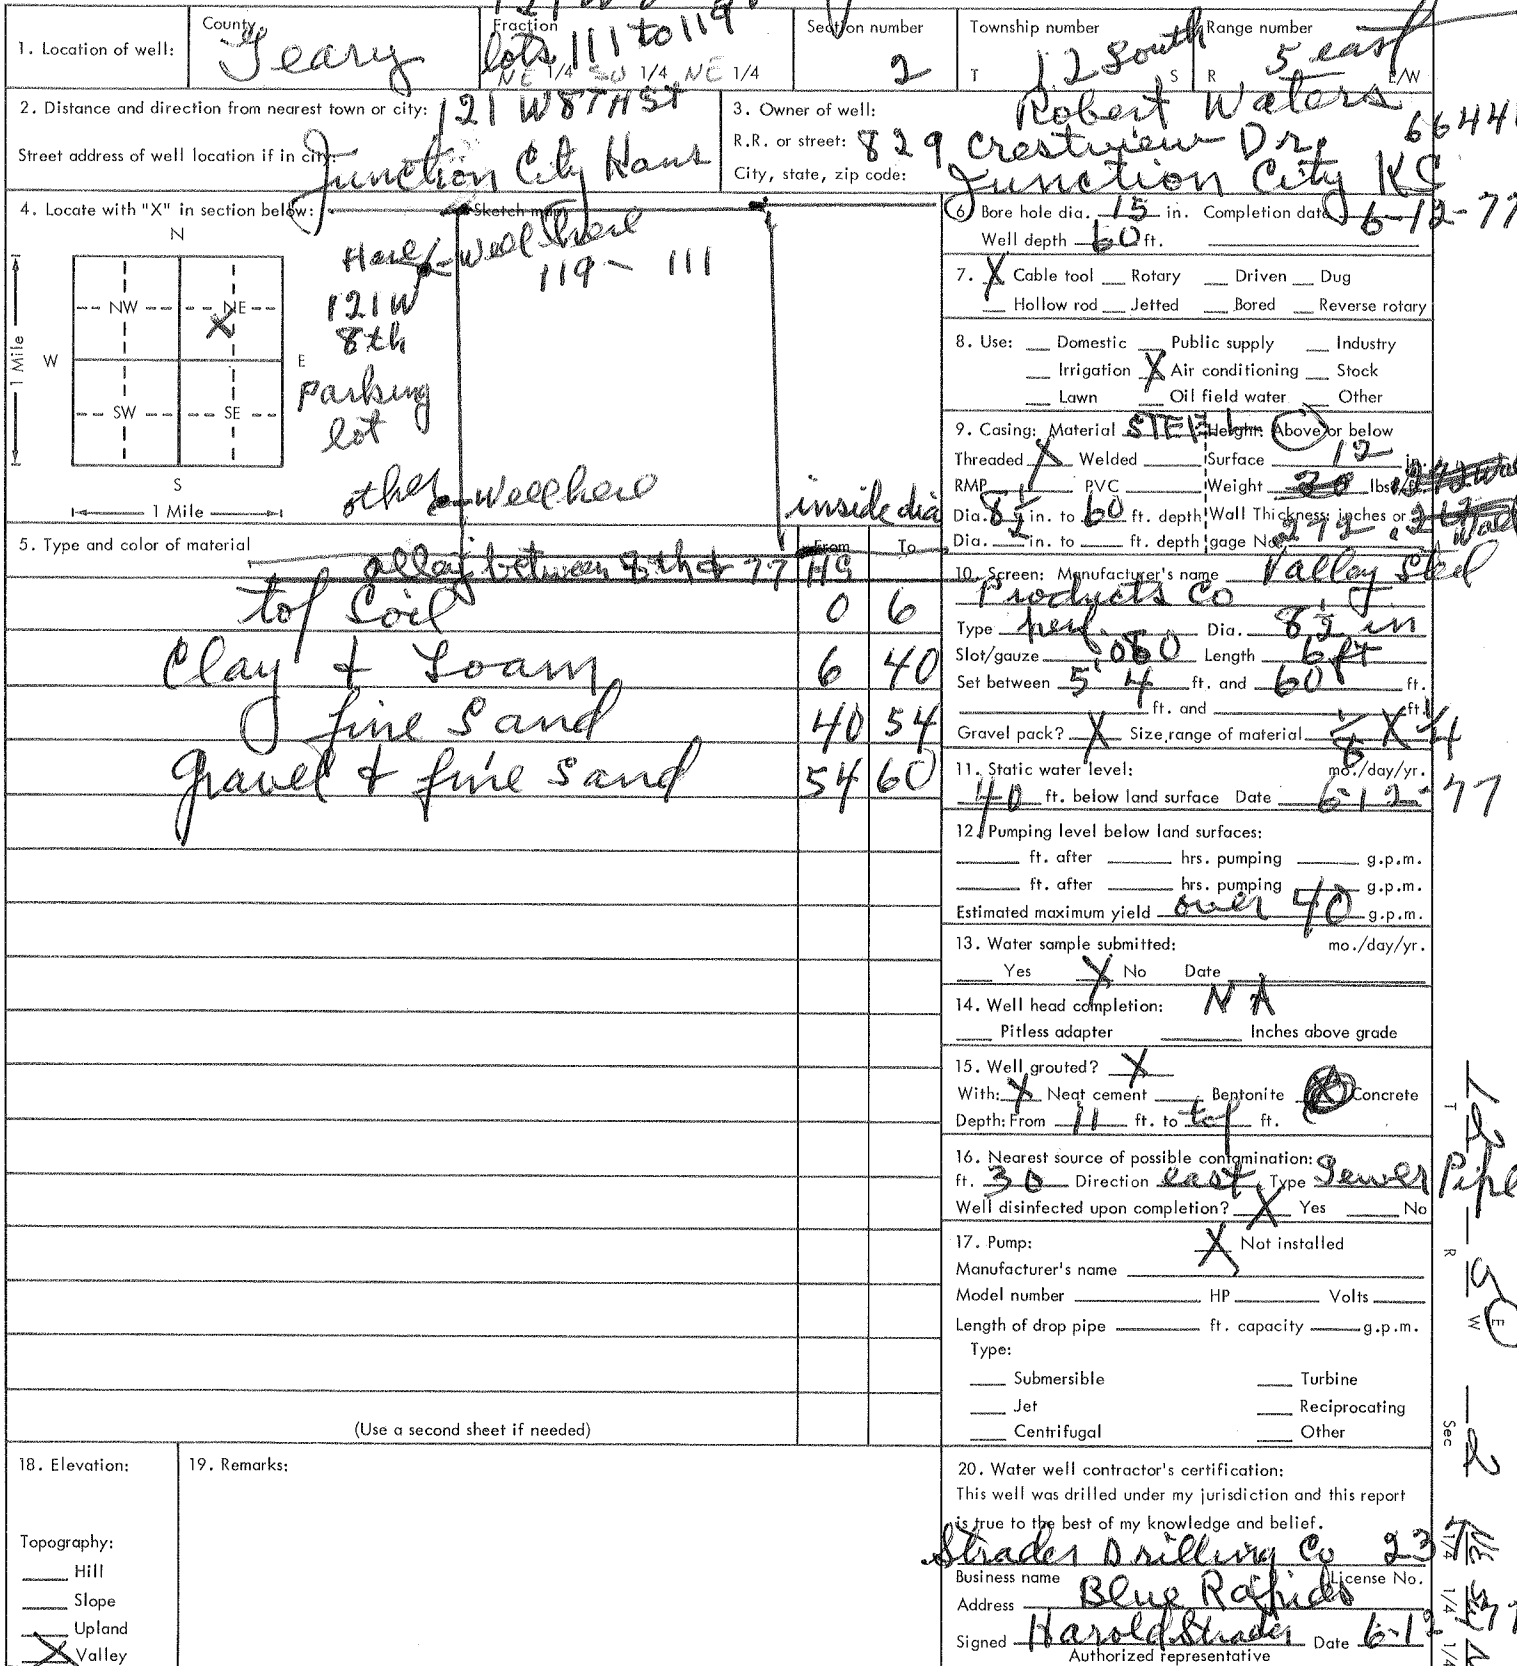 County
Fraction
Section number
Township number
Range number
1. Location of well:
Geary
lots 111 to 119
NE 1/4 SW 1/4 NE 1/4
2
T 12 South S
R 5 east E/W
2. Distance and direction from nearest town or city: 121 W 8TH ST
Street address of well location if in city: Junction City Kans
3. Owner of well: Robert Waters
R.R. or street: 829 Crestview Dr.
City, state, zip code: Junction City KS
4. Locate with "X" in section below:
Sketch map
N
NW
NE
X
W
E
SW
SE
S
1 Mile
1 Mile
Well here
119 - 111
121 W
8th
Parking
lot
other
Well here
inside dia
alley between 8th & 7th
6. Bore hole dia. 15 in. Completion date 6-12-77
Well depth 60 ft.
7. X Cable tool Rotary Driven Dug
Hollow rod Jetted Bored Reverse rotary
8. Use: Domestic Public supply Industry
Irrigation X Air conditioning Stock
Lawn Oil field water Other
9. Casing: Material STEEL Height: Above or below
Threaded X Welded Surface 12 in.
RMP PVC Weight lbs./ft.
Dia. 8 1/2 in. to 60 ft. depth Wall Thickness: inches or
Dia. in. to ft. depth gage No. .272
5. Type and color of material From To
top Soil 0 6
Clay & Loam 6 40
fine Sand 40 54
gravel & fine Sand 54 60
(Use a second sheet if needed)
10. Screen: Manufacturer's name Valley Steel
Products Co
Type perf. Dia. 8 1/2 in
Slot/gauze .060 Length 6 ft
Set between 54 ft. and 60 ft.
ft. and ft.
Gravel pack? X Size range of material 1/8 X 1/4
11. Static water level: mo./day/yr.
40 ft. below land surface Date 6-12-77
12. Pumping level below land surfaces:
ft. after hrs. pumping g.p.m.
ft. after hrs. pumping g.p.m.
Estimated maximum yield over 40 g.p.m.
13. Water sample submitted: mo./day/yr.
Yes X No Date
14. Well head completion: NA
Pitless adapter Inches above grade
15. Well grouted? X
With: X Neat cement Bentonite Concrete
Depth: From 11 ft. to top ft.
16. Nearest source of possible contamination:
ft. 30 Direction east Type Sewer Pipe
Well disinfected upon completion? X Yes No
17. Pump: X Not installed
Manufacturer's name
Model number HP Volts
Length of drop pipe ft. capacity g.p.m.
Type:
Submersible Turbine
Jet Reciprocating
Centrifugal Other
18. Elevation:
19. Remarks:
Topography:
Hill
Slope
Upland
X Valley
20. Water well contractor's certification:
This well was drilled under my jurisdiction and this report
is true to the best of my knowledge and belief.
Strader Drilling Co 23
Business name License No.
Address Blue Rapids
Signed Harold Strader Date 6-12
Authorized representative
T 12
R 5 E W
Sec 2
NE 1/4 SW 1/4 1/4